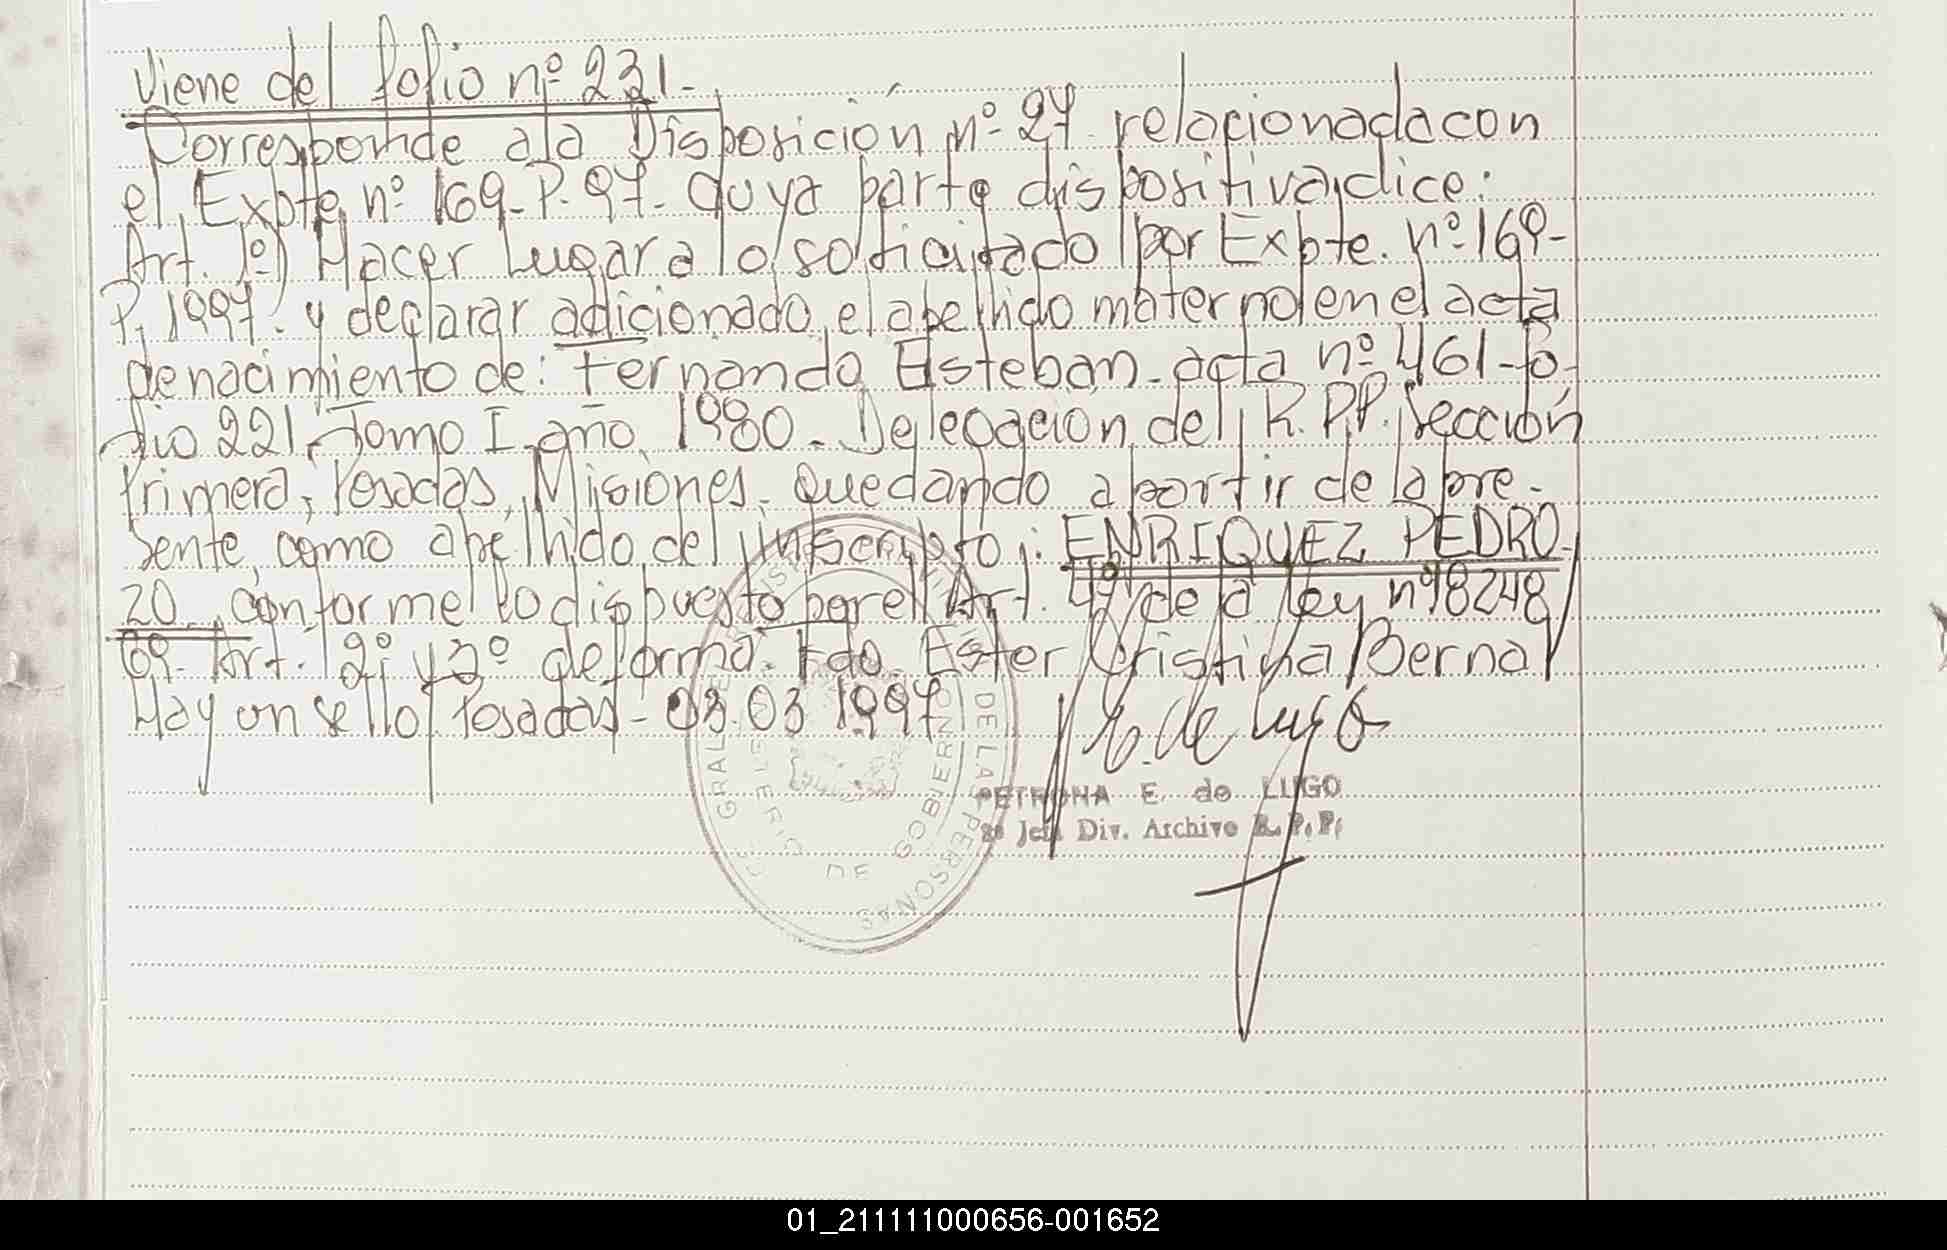 Viene del folio nº 231.-
Corresponde a la Disposición nº 27 relacionada con
el Expte nº 169-P-97- cuya parte dispositiva dice:
Art. 1º) Hacer Lugar a lo solicitado por Expte. nº 169-
P. 1997. y declarar adicionado el apellido materno en el acta
de nacimiento de: Fernando Esteban - acta nº 461- fo-
lio 221, Tomo I, año 1980 - Delegación del R.P.P. Sección
Primera, Posadas, Misiones, quedando a partir de la pre-
sente, como apellido del inscripto: ENRIQUEZ PEDRO
ZO, conforme lo dispuesto por el Art. 4º de la ley nº 18248/
69. Art. 2º y 3º de forma. Fdo Ester Cristina Bernal
Hay un sello/ Posadas - 03.03 1997
E. de Lugo
PETRONA E. de LUGO
2º Jefe Div. Archivo R.P.P.
GRAL DE LAS PERSONAS
DE GOBIERNO
01_211111000656-001652